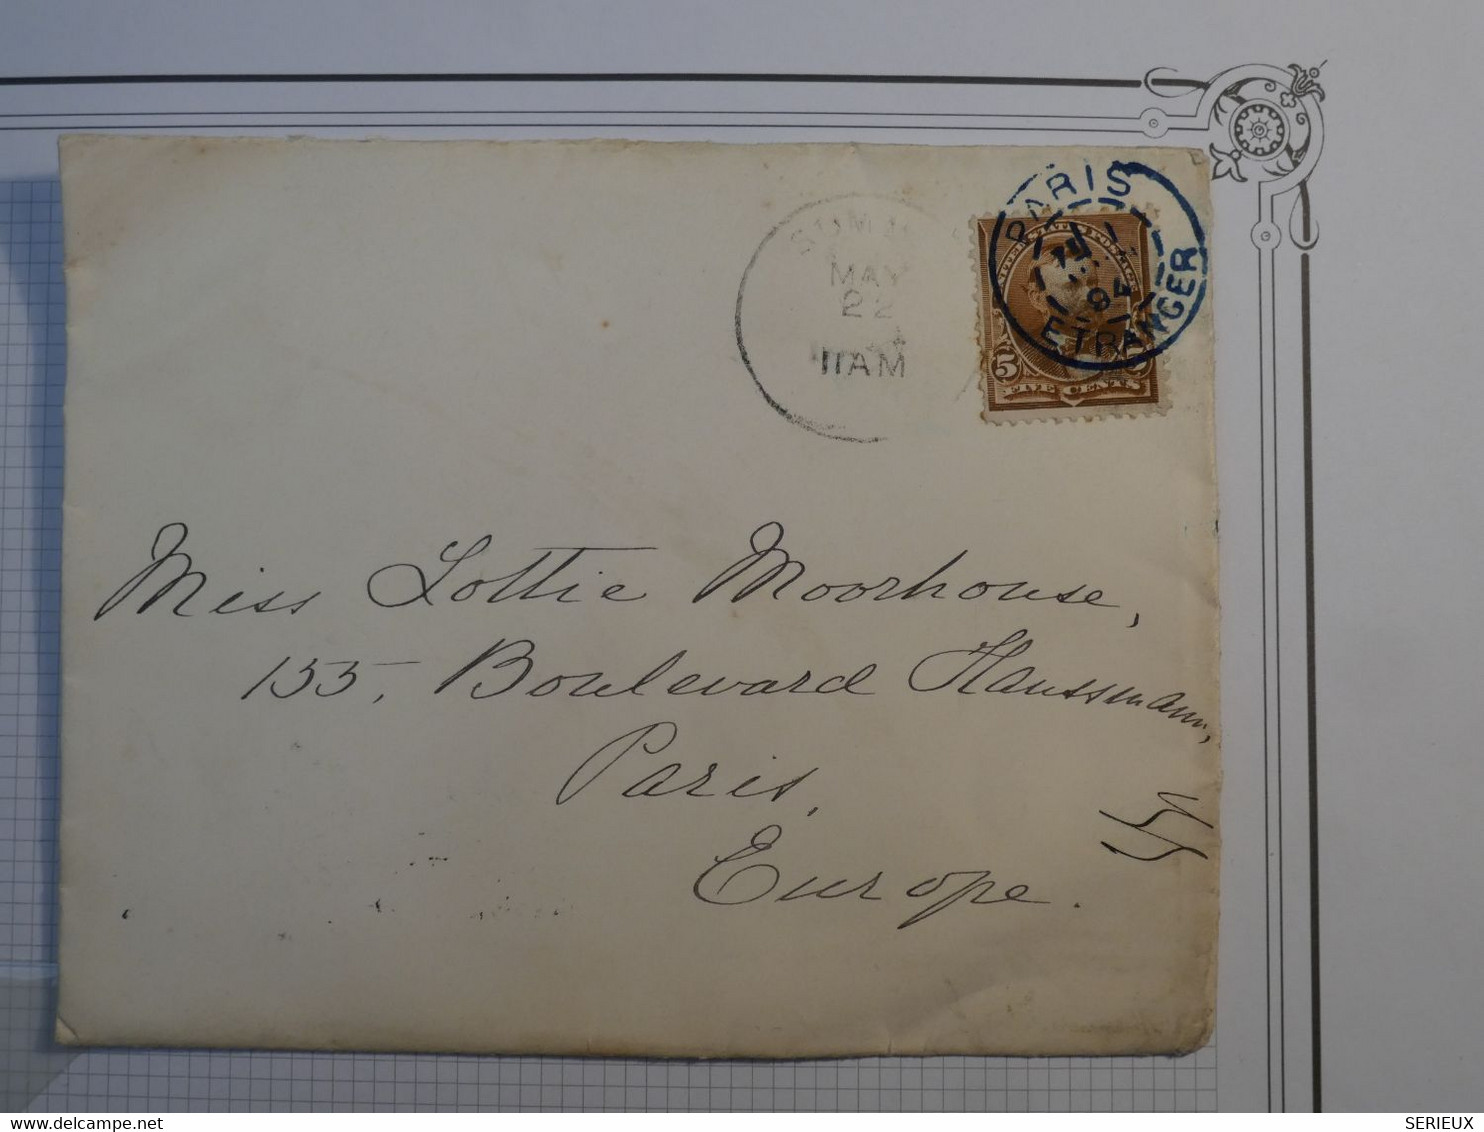 PARIS
94
ETRANGER
MAY
22
11AM
5
FIVE CENTS
Miss Lottie Moorhouse,
155, Boulevard Haussmann,
Paris,
Europe.
© delcampe.net
SERIEUX